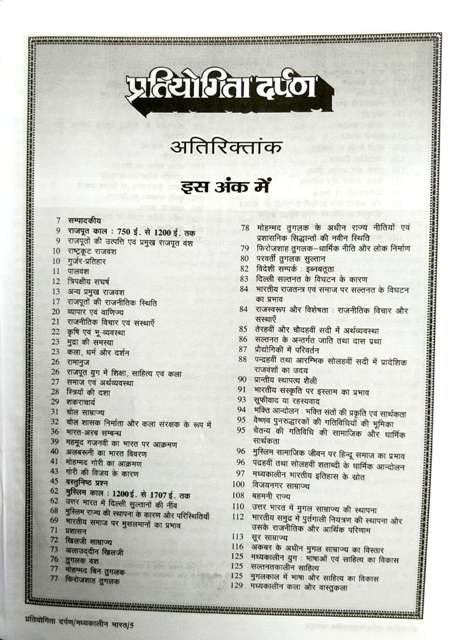 प्रतियोगिता दर्पण
अतिरिक्तांक
इस अंक में
7 सम्पादकीय
9 राजपूत काल : 750 ई. से 1200 ई. तक
9 राजपूतों की उत्पत्ति एवं प्रमुख राजपूत वंश
10 राष्ट्रकूट राजवंश
10 गुर्जर-प्रतिहार
11 पालवंश
12 त्रिपक्षीय संघर्ष
13 अन्य प्रमुख राजवंश
17 राजपूतों की राजनीतिक स्थिति
20 व्यापार एवं वाणिज्य
21 राजनीतिक विचार एवं संस्थाएँ
22 कृषि एवं भू-व्यवस्था
23 मुद्रा की समस्या
23 कला, धर्म और दर्शन
26 रामानुज
26 राजपूत युग में शिक्षा, साहित्य एवं कला
27 समाज एवं अर्थव्यवस्था
28 स्त्रियों की दशा
29 शंकराचार्य
31 चोल साम्राज्य
32 चोल शासक निर्माता और कला संरक्षक के रूप में
36 भारत-अरब सम्बन्ध
39 महमूद गजनवी का भारत पर आक्रमण
40 अलबरूनी का भारत विवरण
41 मोहम्मद गौरी का आक्रमण
43 गौरी की विजय के कारण
45 वस्तुनिष्ठ प्रश्न
62 मुस्लिम काल : 1200 ई. से 1707 ई. तक
62 उत्तर भारत में दिल्ली सुल्तानों की नींव
68 मुस्लिम राज्य की स्थापना के कारण और परिस्थितियाँ
69 भारतीय समाज पर मुसलमानों का प्रभाव
71 प्रशासन
72 खिलजी साम्राज्य
73 अलाउद्दीन खिलजी
76 तुगलक वंश
77 मोहम्मद बिन तुगलक
77 फिरोजशाह तुगलक
78 मोहम्मद तुगलक के अधीन राज्य नीतियों एवं
प्रशासनिक सिद्धान्तों की नवीन स्थिति
79 फिरोजशाह तुगलक-धार्मिक नीति और लोक निर्माण
80 परवर्ती तुगलक सुल्तान
82 विदेशी सम्पर्क : इब्नबतूता
83 दिल्ली सल्तनत के विघटन के कारण
84 भारतीय राजतन्त्र एवं समाज पर सल्तनत के विघटन
का प्रभाव
84 राजस्वरूप और विशेषता : राजनीतिक विचार और
संस्थाएँ
85 तेरहवीं और चौदहवीं सदी में अर्थव्यवस्था
86 सल्तनत के अन्तर्गत जाति तथा दास प्रथा
87 प्रौद्योगिकी में परिवर्तन
88 पन्द्रहवीं तथा आरम्भिक सोलहवीं सदी में प्रादेशिक
राजवंशों का उदय
90 प्रान्तीय स्थापत्य शैली
91 भारतीय संस्कृति पर इस्लाम का प्रभाव
93 सूफीवाद या रहस्यवाद
94 भक्ति आन्दोलन : भक्ति संतों की प्रकृति एवं सार्थकता
95 वैष्णव पुनरुद्धारकों की गतिविधियों की भूमिका
95 चैतन्य की गतिविधि की सामाजिक और धार्मिक
सार्थकता
96 मुस्लिम सामाजिक जीवन पर हिन्दू समाज का प्रभाव
96 पंद्रहवीं तथा सोलहवीं शताब्दी के धार्मिक आन्दोलन
97 मध्यकालीन भारतीय इतिहास के स्रोत
100 विजयनगर साम्राज्य
108 बहमनी राज्य
110 उत्तर भारत में मुगल साम्राज्य की स्थापना
112 भारतीय समुद्र में पुर्तगाली नियंत्रण की स्थापना और
उसके राजनीतिक और आर्थिक परिणाम
113 सूर साम्राज्य
116 अकबर के अधीन मुगल साम्राज्य का विस्तार
125 मध्यकालीन युग : भाषाओं एवं साहित्य का विकास
125 सल्तनतकालीन साहित्य
125 मुगलकाल में भाषा और साहित्य का विकास
129 मध्यकालीन कला और वास्तुकला
प्रतियोगिता दर्पण/मध्यकालीन भारत/5